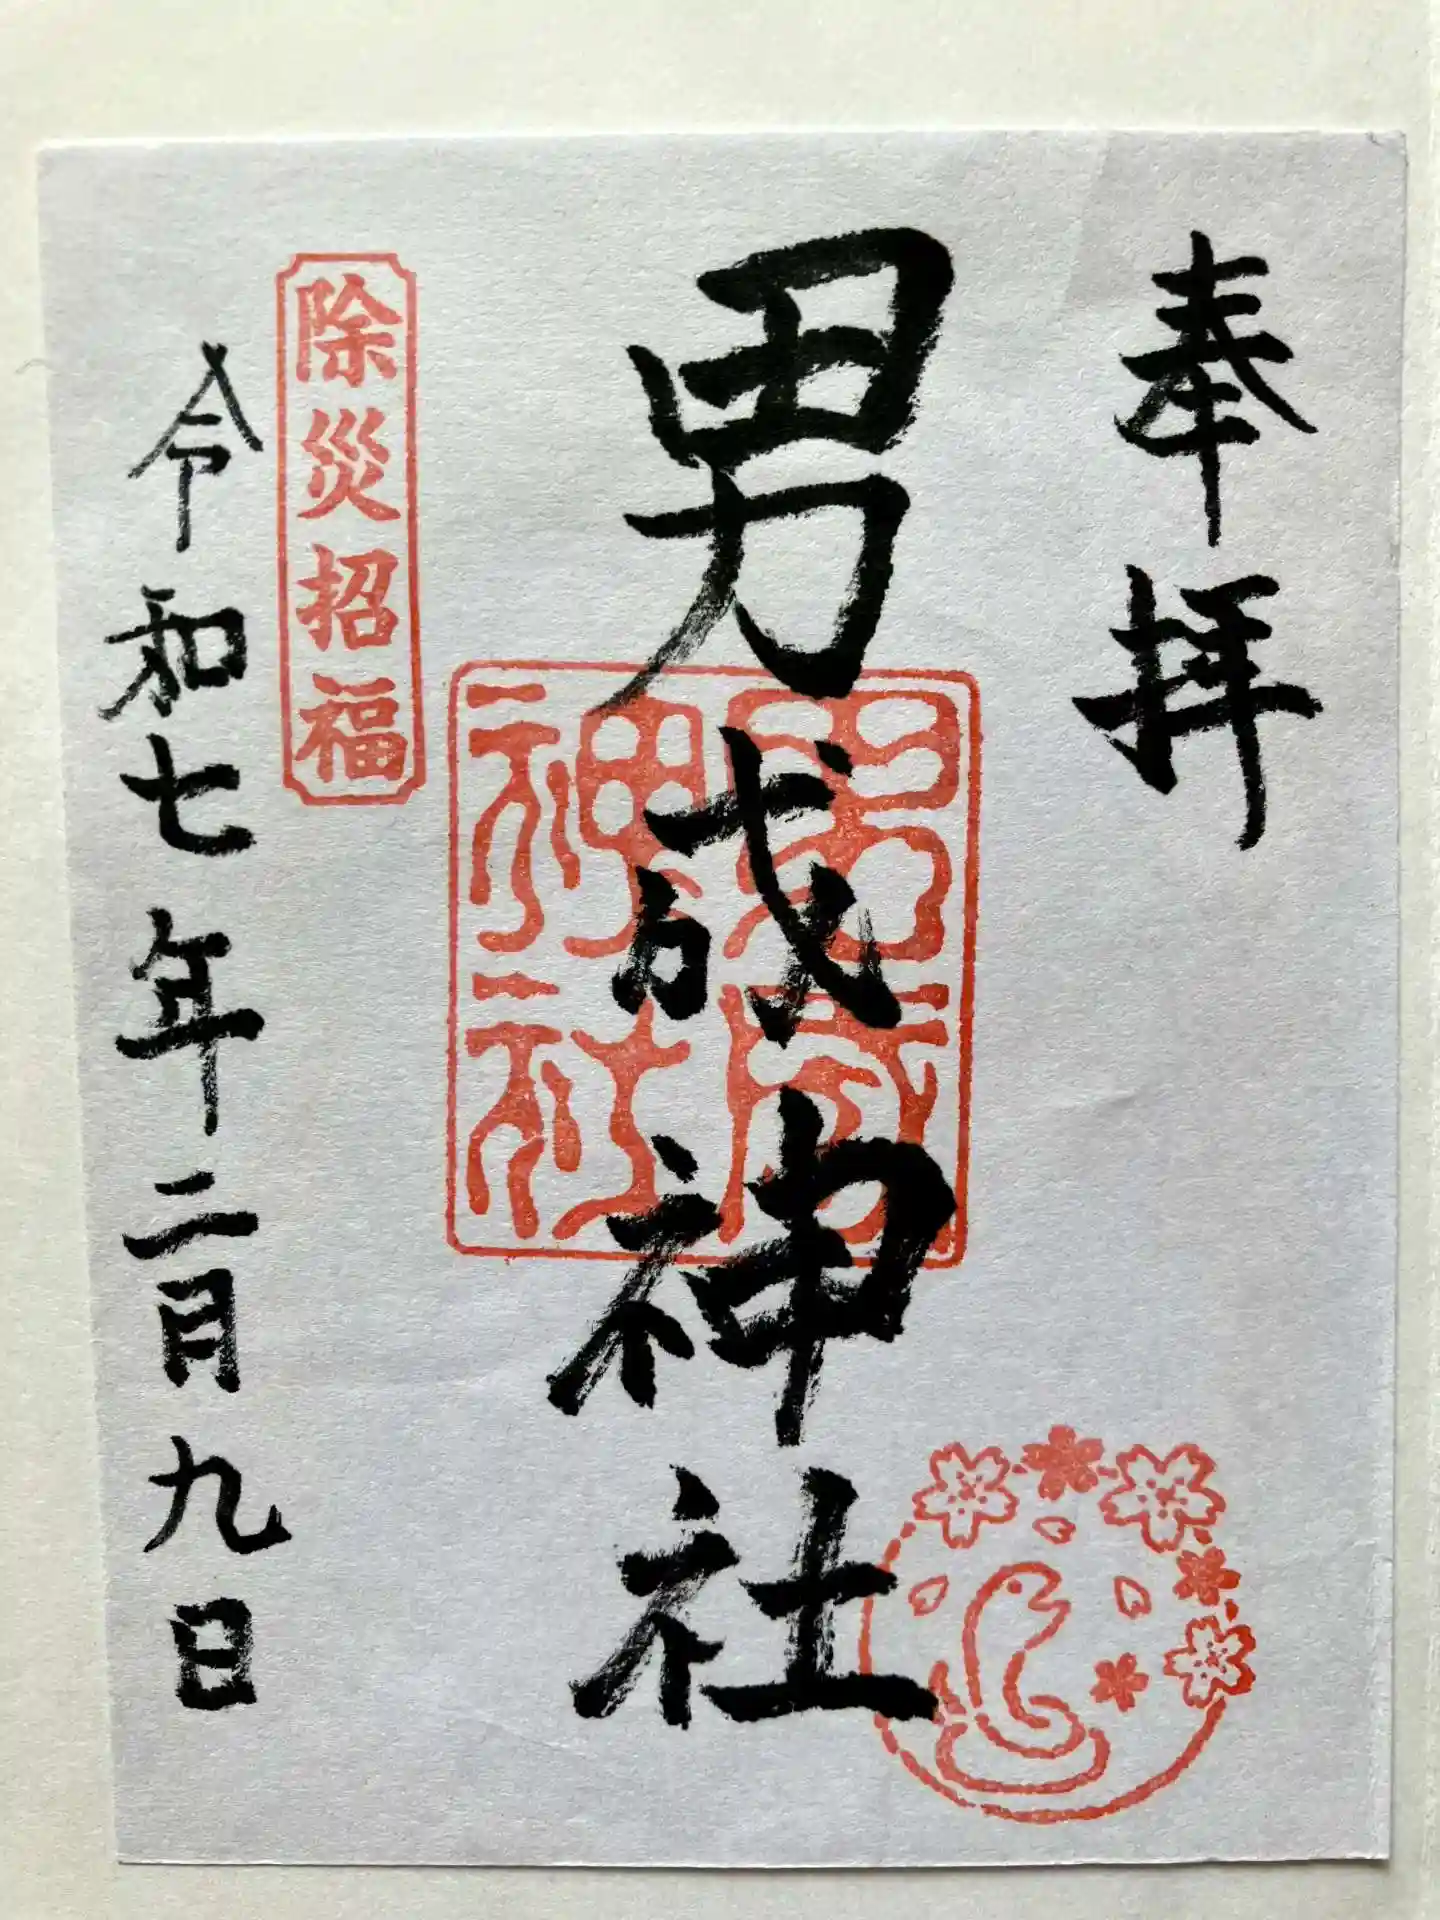 奉拝
男成神社
男成神社
除災招福
令和七年二月九日